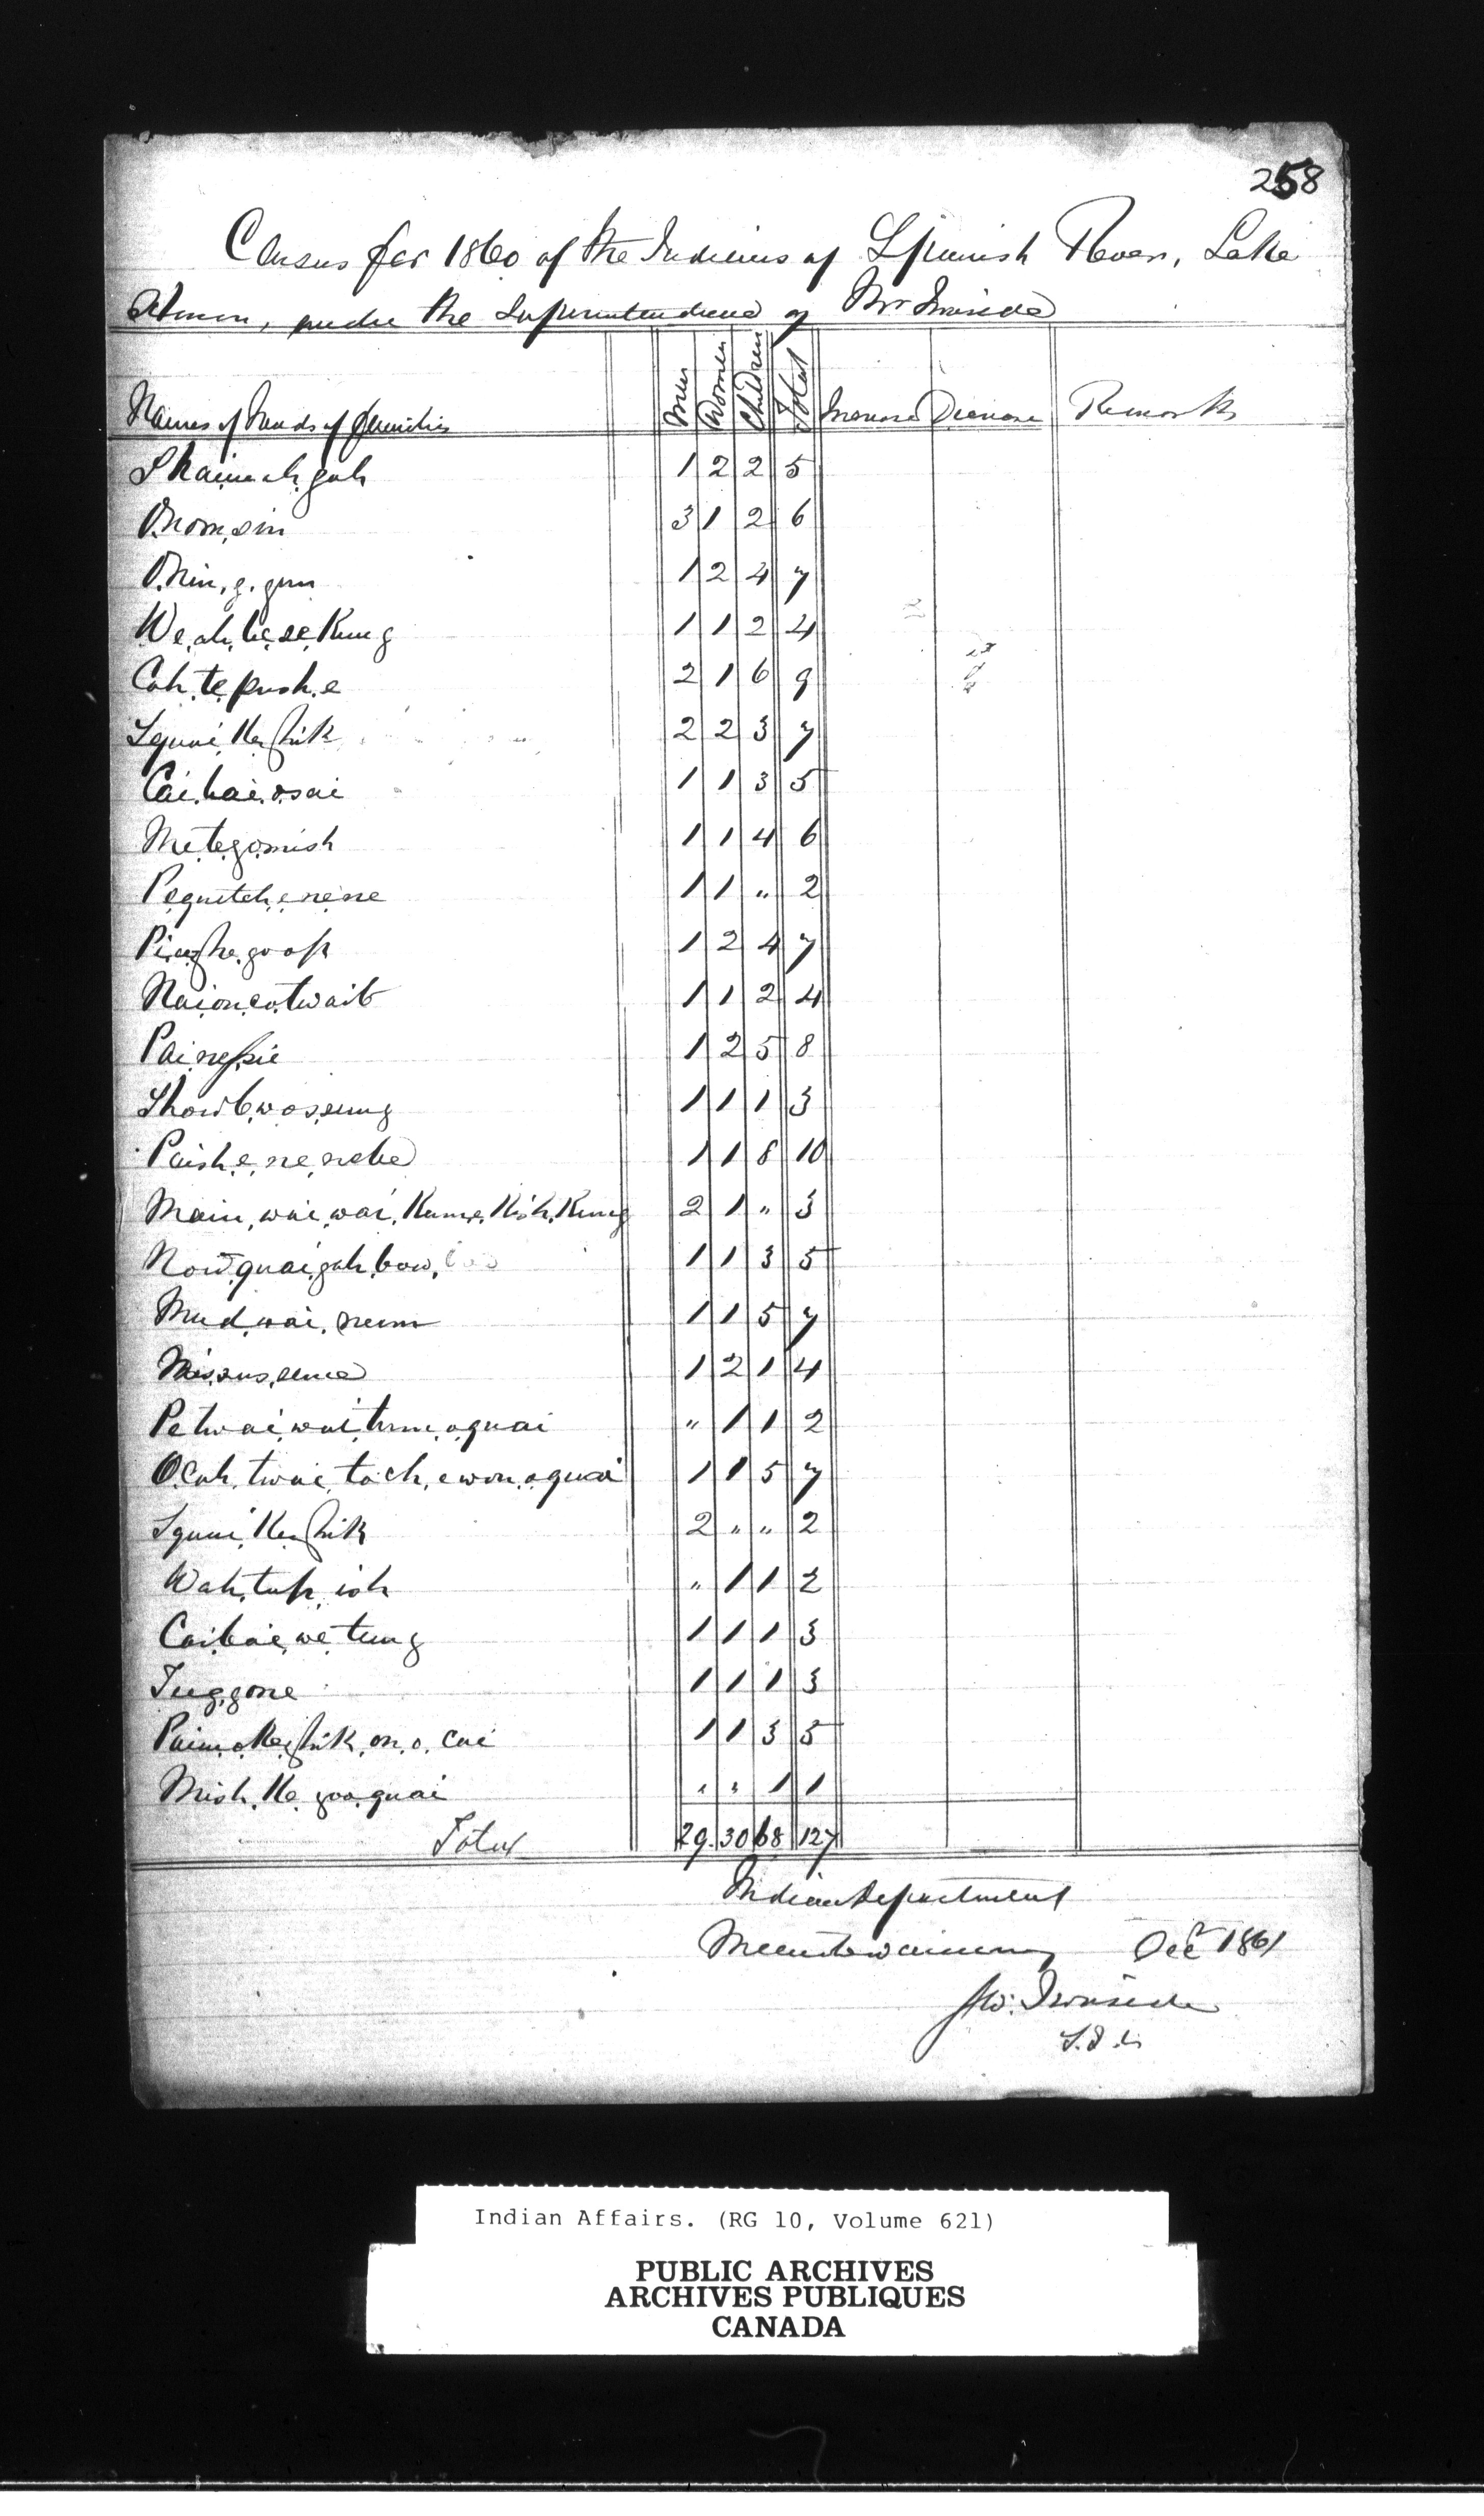 258
Census for 1860 of the Indians of Spanish River, Lake
Huron, under the Superintendence of Mr Ironside
Names of Heads of families Men Women Children Total Increase Decrease Remarks
Shaiwah,gah 1 2 2 5
O.nom,sin 3 1 2 6
O.nin,g.gun 1 2 4 7
We,ah,be,se,Kung 1 1 2 4
Cah.te,push.e 2 1 6 9
Squai,Ke,shik 2 2 3 7
Cai.bai.osai 1 1 3 5
Me.te.go.mish 1 1 4 6
Pegutch,e,ne,ne 1 1 " 2
1 2 4 7
Nai,on,co,twait 1 1 2 4
1 2 5 8
Show,bwos,sung 1 1 1 3
Paish,e,ne,nebe 1 1 8 10
Main,wai,wai,Kume,Kish,Kung 2 1 " 3
Now,quai,gah,bow, 1 1 3 5
Mud,wai,num 1 1 5 7
1 2 1 4
Petwai,wai,tum,oquai " 1 1 2
O.cah.twai,tach,ewon,oquai 1 1 5 7
Squai,Ke,shik 2 " " 2
Wah,tup,ish " 1 1 2
Caibai,we,tung 1 1 1 3
Tug,gone 1 1 1 3
Paim,o,Ke,shik,on.o.cai 1 1 3 5
Mish.Ke.goo.quai " " 1 1
Total 29 30 68 127
Indian Department
Manitowaning Decr 1861
Ironside
S.I.A.
Indian Affairs. (RG 10, Volume 621)
PUBLIC ARCHIVES
ARCHIVES PUBLIQUES
CANADA